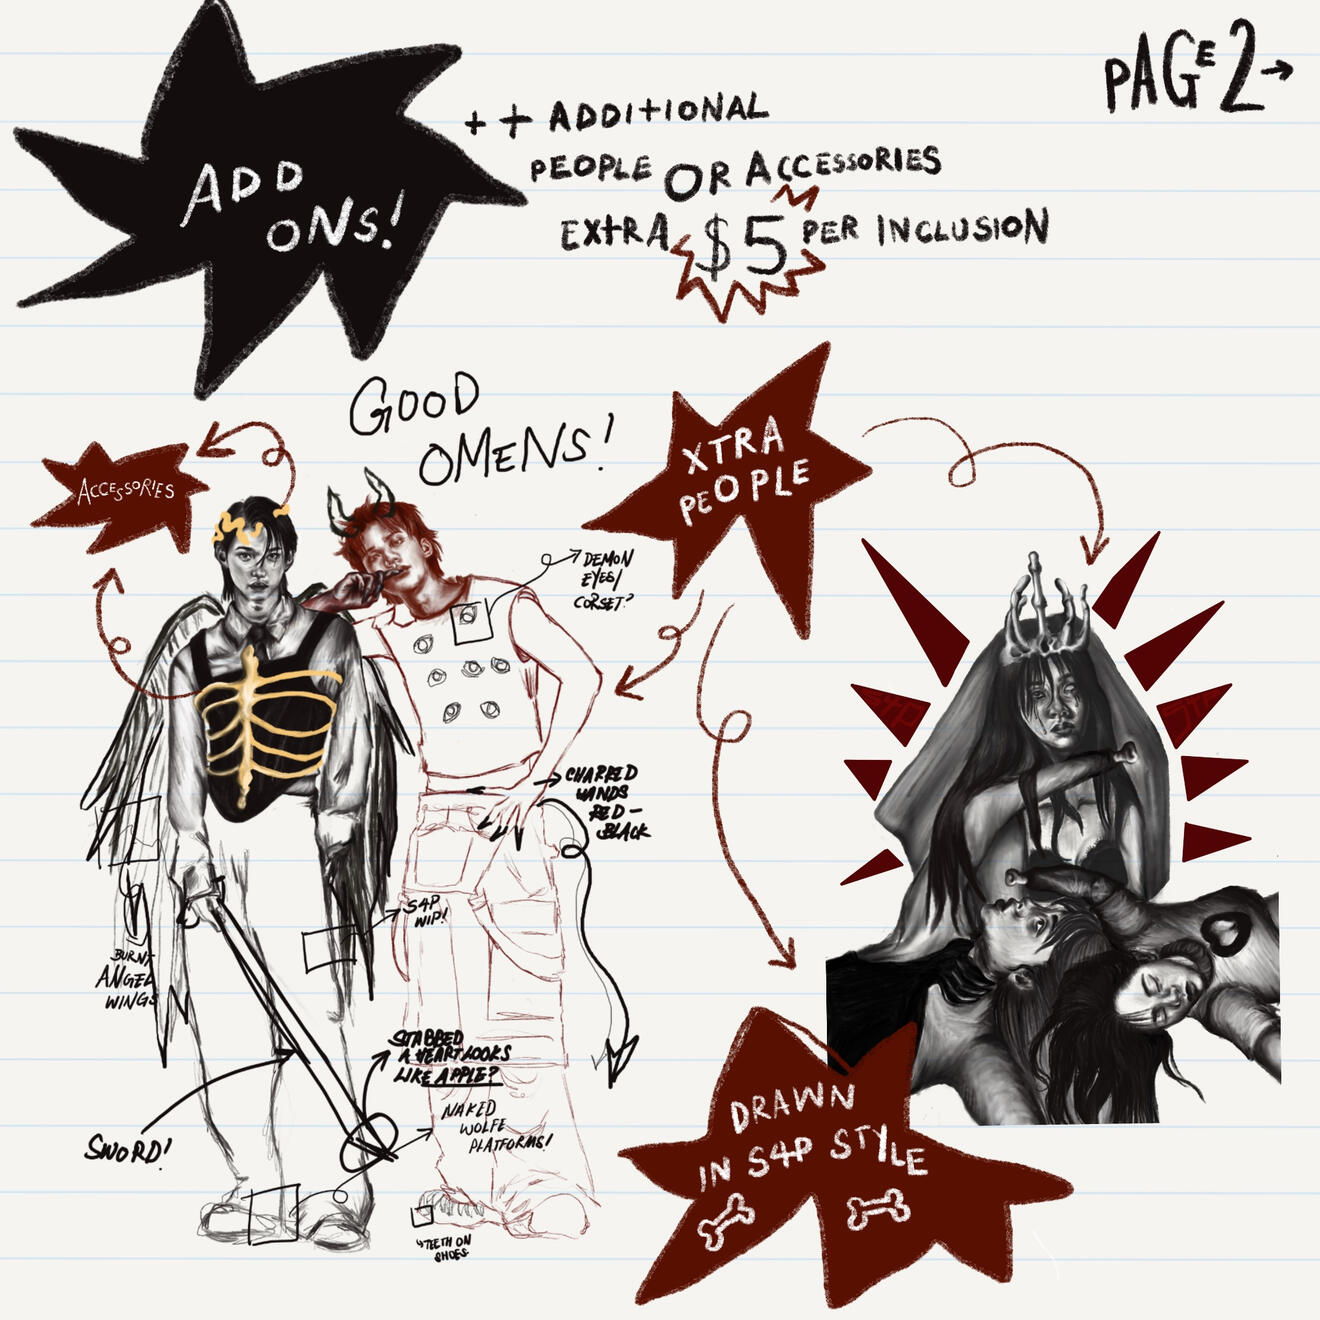 PAGE 2→
ADD
ONS!
++ ADDITIONAL
PEOPLE OR ACCESSORIES
EXTRA $5 PER INCLUSION
GOOD
OMENS!
ACCESSORIES
XTRA
PEOPLE
DEMON
EYES/
CORSET?
CHARRED
HANDS
RED-
BLACK
S4P
WIP!
BURNT
ANGEL
WINGS
STABBED
A HEART LOOKS
LIKE APPLE?
NAKED
WOLFE
PLATFORMS!
SWORD!
TEETH ON
SHOES
DRAWN
IN S4P STYLE